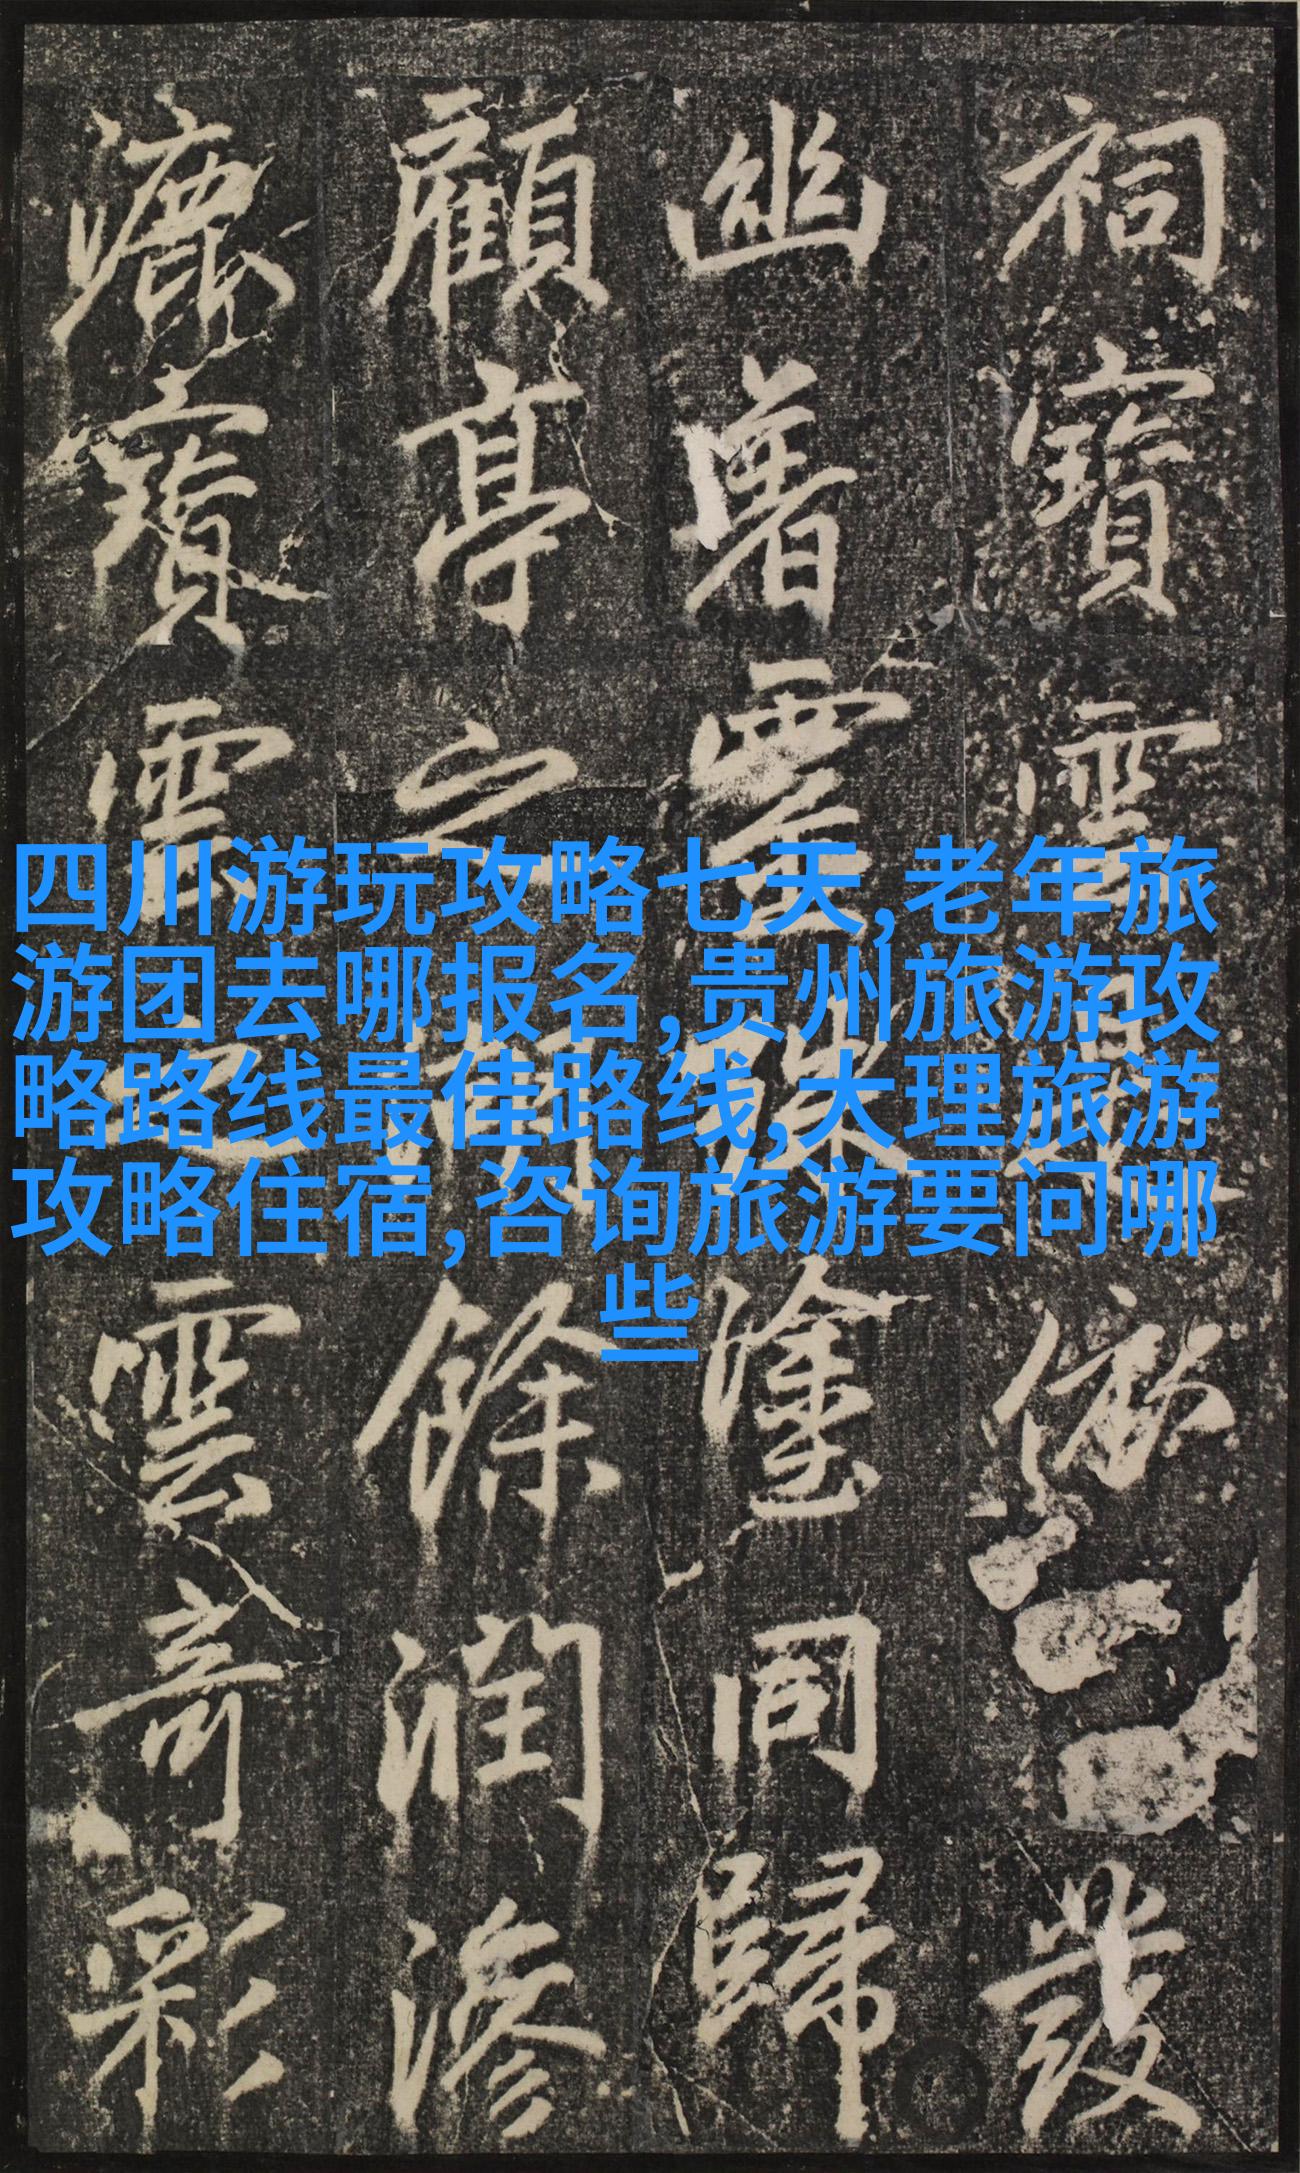 四川游玩攻略七天,老年旅
游团去哪报名,贵州旅游攻
略路线最佳路线,大理旅游
攻略住宿,咨询旅游要问哪
些
祠寶靈發
幽署塗同歸
顧亭之餘潤滲
漉寶雲奇彩